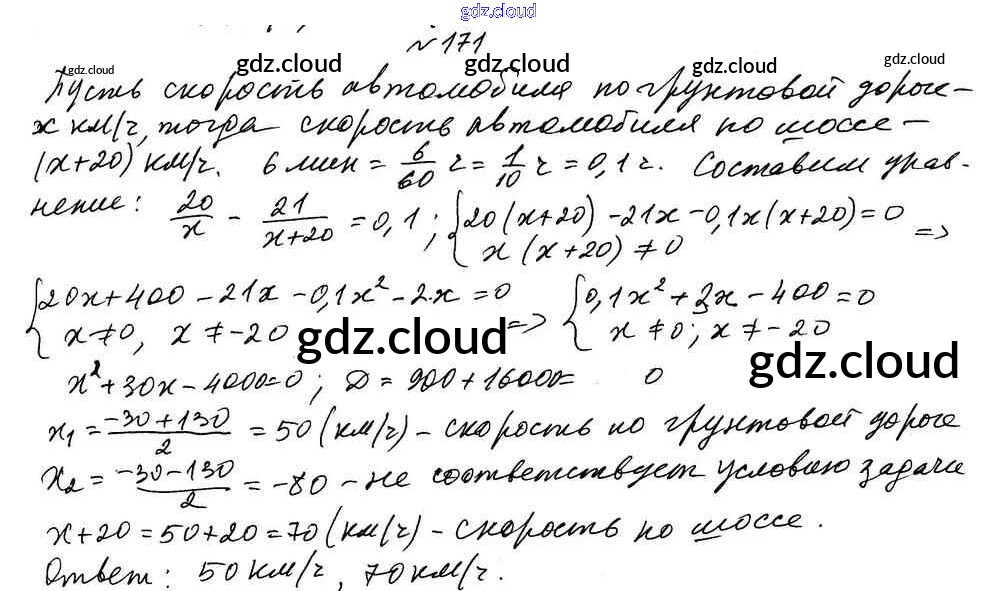 gdz.cloud
№171
gdz.cloud gdz.cloud gdz.cloud gdz.cloud gdz.cloud
Пусть скорость автомобиля по грунтовой дороге –
x км/ч, тогда скорость автомобиля по шоссе –
(x+20) км/ч. 6 мин = 6/60 ч = 1/10 ч = 0,1 ч. Составим урав-
нение: 20/x - 21/(x+20) = 0,1; { 20(x+20) - 21x - 0,1x(x+20) = 0
x(x+20) ≠ 0 =>
{ 20x + 400 - 21x - 0,1x² - 2x = 0
x ≠ 0, x ≠ -20 => { 0,1x² + 3x - 400 = 0
x ≠ 0; x ≠ -20
gdz.cloud gdz.cloud
x² + 30x - 4000 = 0; D = 900 + 16000 = 0
x₁ = (-30+130)/2 = 50 (км/ч) - скорость по грунтовой дороге
x₂ = (-30-130)/2 = -80 - не соответствует условию задачи
x + 20 = 50 + 20 = 70 (км/ч) - скорость по шоссе.
Ответ: 50 км/ч, 70 км/ч.